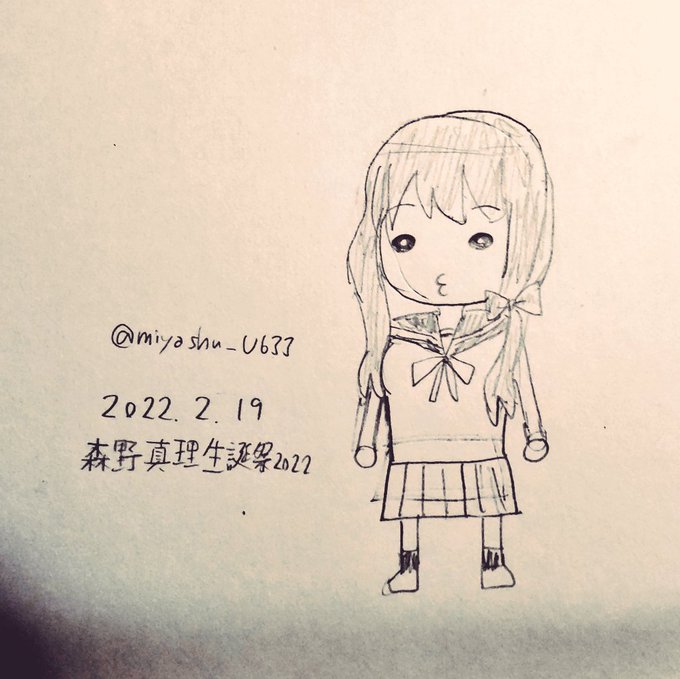 @miyashu_U633
2022.2.19
森野真理生誕祭2022